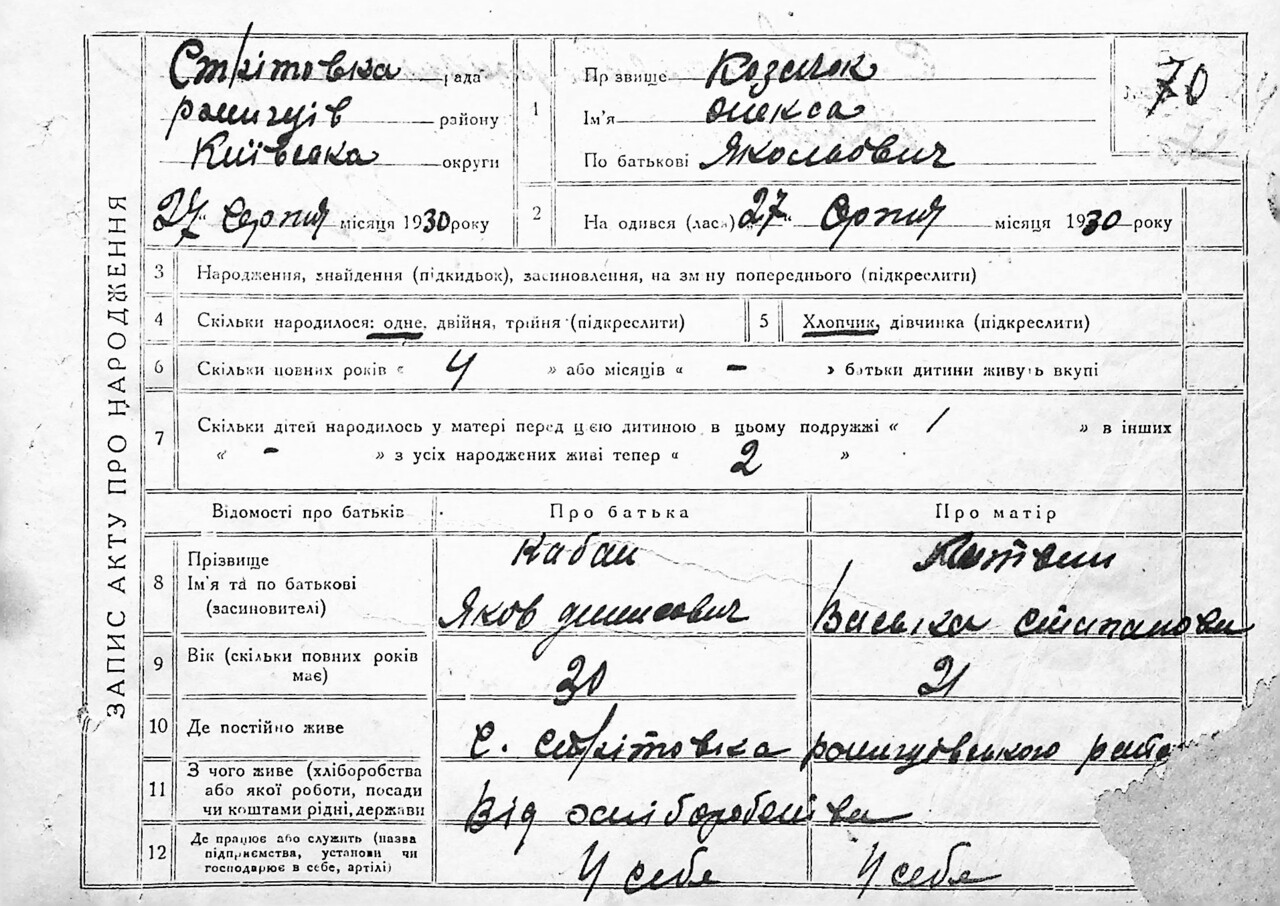 ЗАПИС АКТУ ПРО НАРОДЖЕННЯ
Стрітовка рада
району
Київська округи
27 Серпня місяця 1930 року
70
1 Прзвище Козачок
Ім'я Олекса
По батькові Якольович
2 На одився (лась) 27 Серпня місяця 1930 року
3 Народження, знайдення (підкидьок), засиновлення, на зміну попереднього (підкреслити)
4 Скільки народилося: одне, двійня, трійня (підкреслити)
5 Хлопчик, дівчинка (підкреслити)
6 Скільки повних років « 4 » або місяців « - » батьки дитини живуть вкупі
7 Скільки дітей народилось у матері перед цією дитиною в цьому подружжі « 1 » в інших
« - » з усіх народжених живі тепер « 2 »
Відомості про батьків Про батька Про матір
8 Прізвище
Ім'я та по батькові
(засиновителі)
Кабан
Яков Денисович
Василка Стипанови
9 Вік (скільки повних років
має)
30 21
10 Де постійно живе С. Стрітовка
11 З чого живе (хліборобства
або якої роботи, посади
чи коштами рідні, держави
Від хліборобства
12 Де працює або служить (назва
підприємства, установи чи
господарює в себе, артілі)
У себе У себе